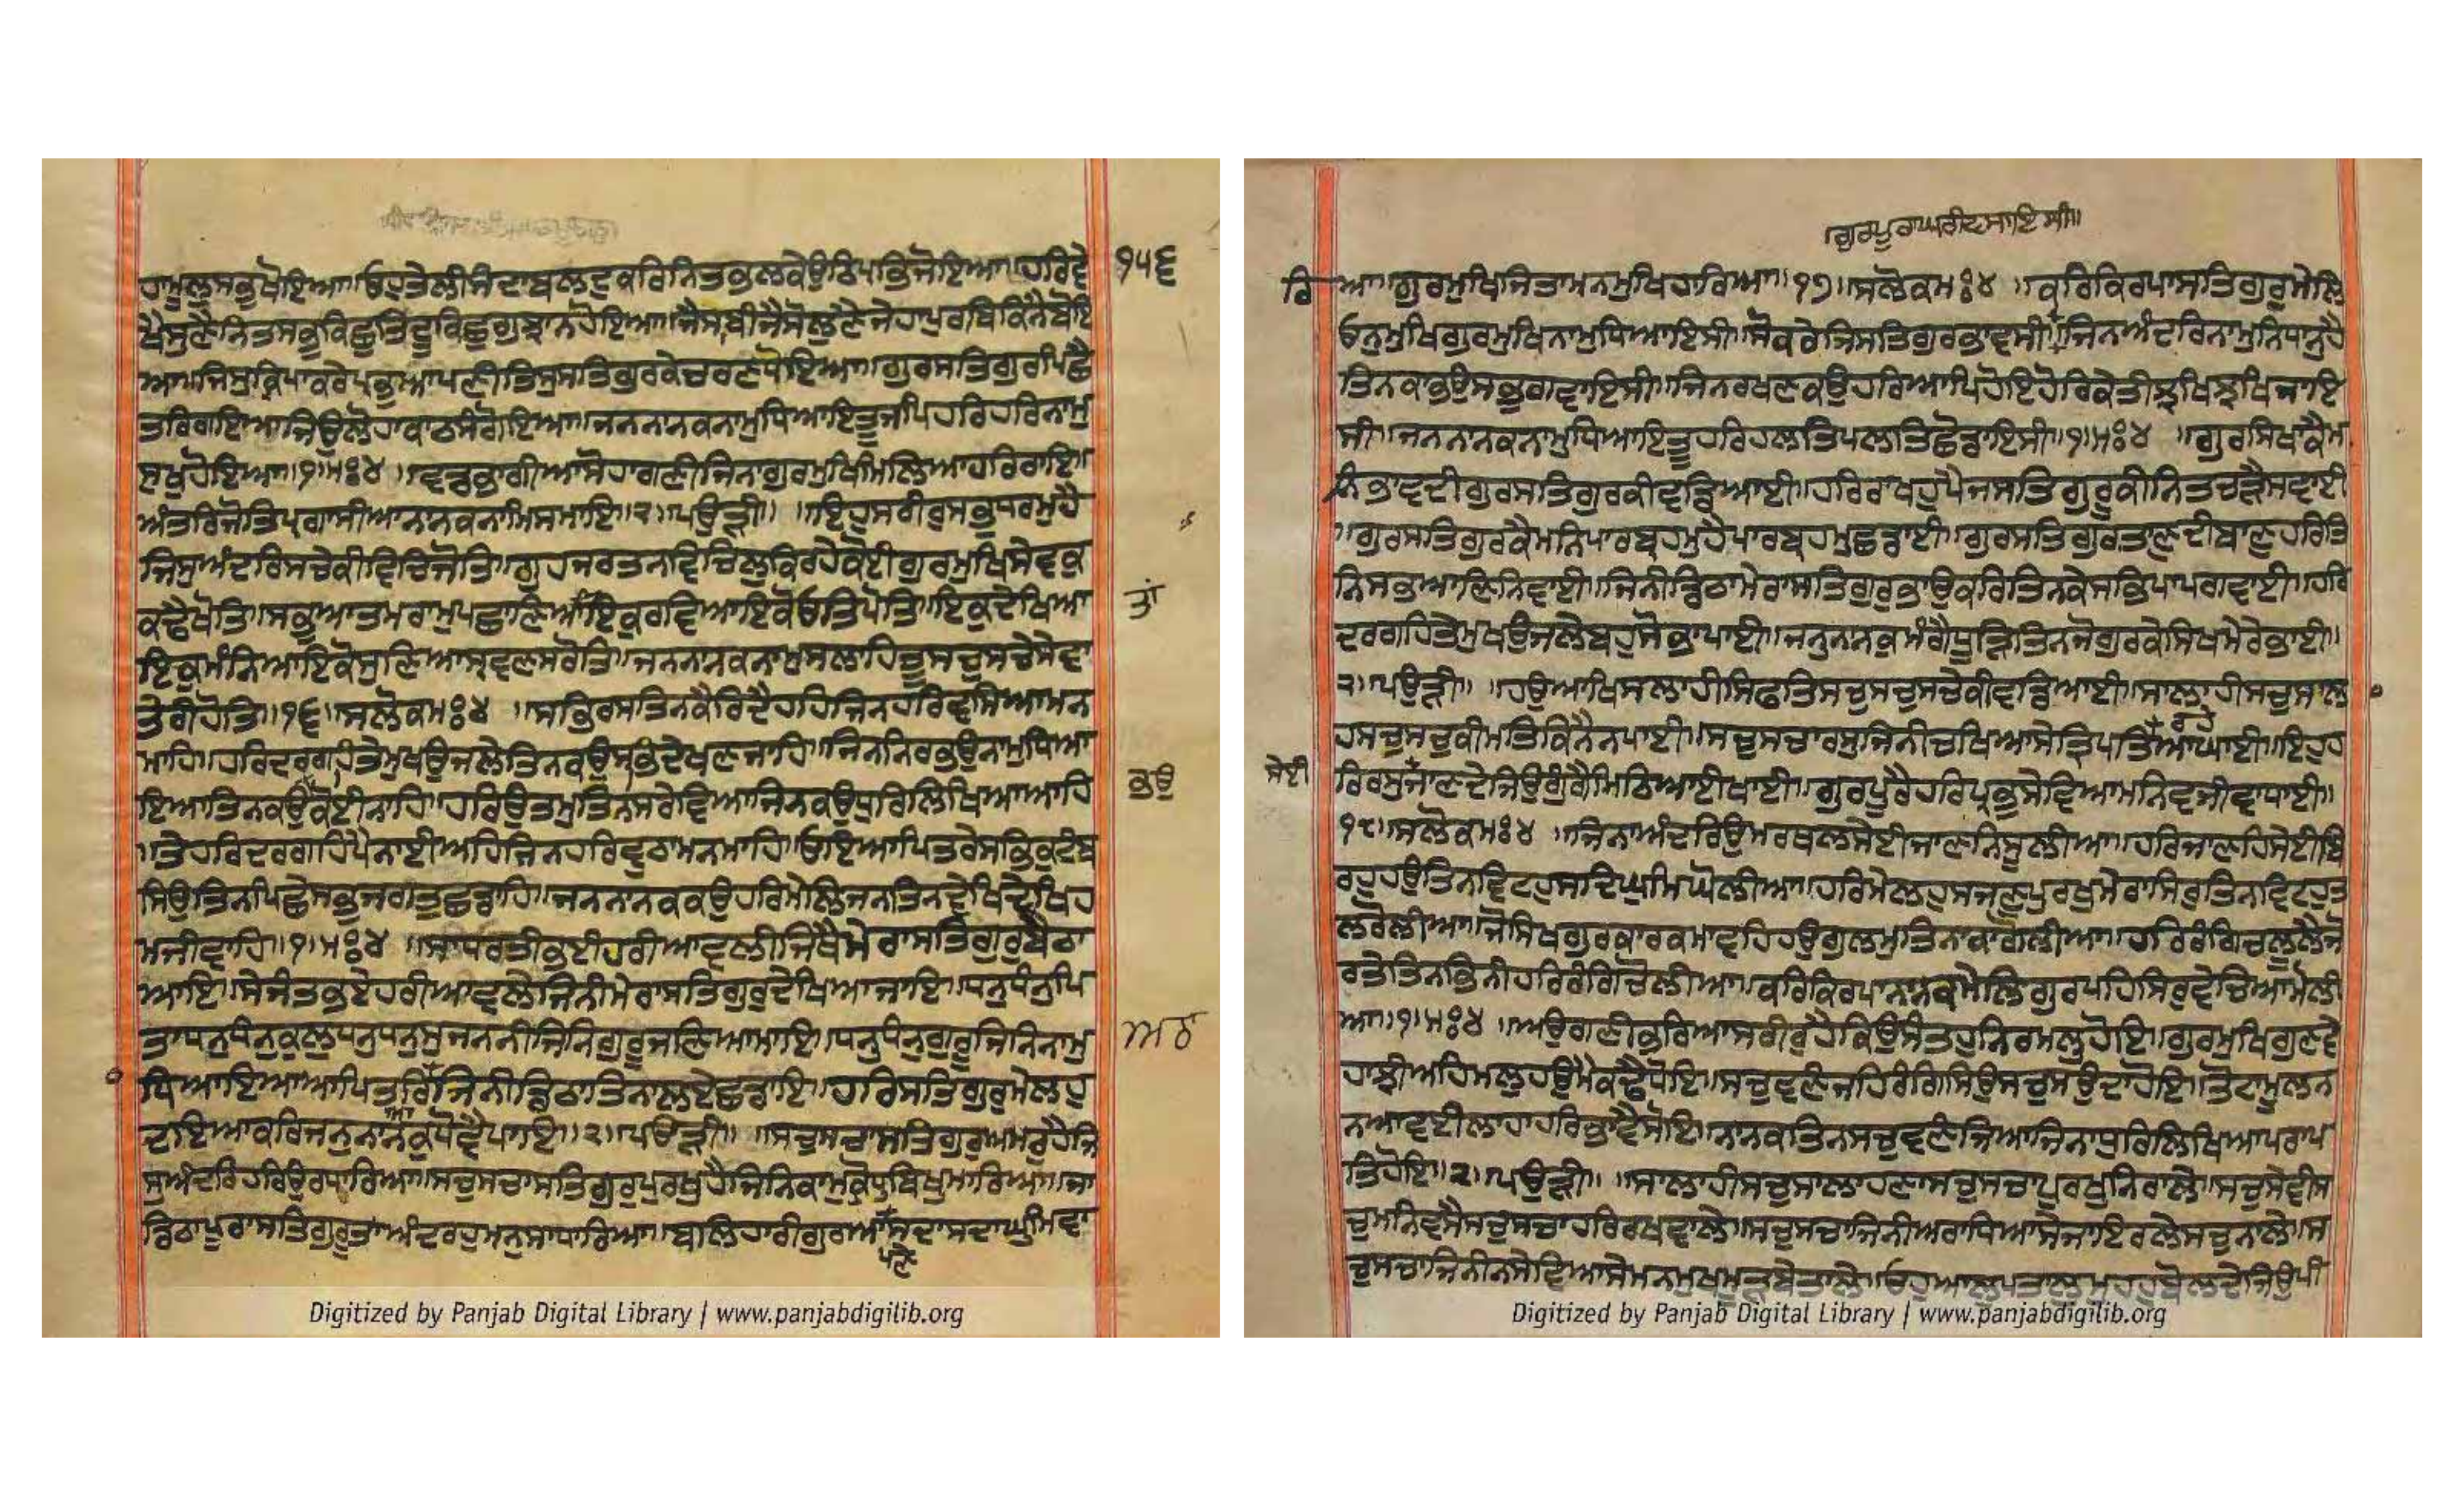 ਹਾਮੂਲੁਸਭੁਖੋਇਆ॥ਓਹੁਤੇਲੀਸੰਦਾਬਲਦੁਕਰਿਨਿਤਭਲਕੇਉਠਿਪ੍ਰਭਿਜੋਇਆ॥ਹਰਿਵੇ ੧੫੬
ਖੈਸੁਣੈਨਿਤਸਭੁਕਿਛੁਤਿਦੂਕਿਛੁਗੁਝਾਨਹੋਇਆ॥ਜੈਸਾਬੀਜੈਸੋਲੁਣੈਜੇਹਾਪੁਰਬਿਕਿਨੈਬੋਇ
ਆ॥ਜਿਸੁਕ੍ਰਿਪਾਕਰੇਪ੍ਰਭੁਆਪਣੀਤਿਸੁਸਤਿਗੁਰਕੇਚਰਣਧੋਇਆ॥ਗੁਰਸਤਿਗੁਰਪਿਛੈ
ਤਰਿਗਇਆਜਿਉਲੋਹਾਕਾਠਸੰਗੋਇਆ॥ਜਨਨਾਨਕਨਾਮੁਧਿਆਇਤੂਜਪਿਹਰਿਹਰਿਨਾਮੁ
ਸੁਖੁਹੋਇਆ॥੧॥ਮਃ੪॥ਵਡਭਾਗੀਆਸੋਹਾਗਣੀਜਿਨਾਗੁਰਮੁਖਿਮਿਲਿਆਹਰਿਰਾਇ॥
ਅੰਤਰਿਜੋਤਿਪ੍ਰਗਾਸੀਆਨਾਨਕਨਾਮਿਸਮਾਇ॥੨॥ਪਉੜੀ॥ ॥ਇਹੁਸਰੀਰੁਸਭੁਧਰਮੁਹੈ
ਜਿਸੁਅੰਦਰਿਸਚੇਕੀਵਿਚਿਜੋਤਿ॥ਗੁਹਜਰਤਨਵਿਚਿਲੁਕਿਰਹੇਕੋਈਗੁਰਮੁਖਿਸੇਵਕੁ
ਕਢੈਖੋਤਿ॥ਸਭੁਆਤਮਰਾਮੁਪਛਾਣਿਆਇਕੁਰਵਿਆਇਕੋਓਤਿਪੋਤਿ॥ਇਕੁਦੇਖਿਆ ਤਾਂ
ਇਕੁਮੰਨਿਆਇਕੋਸੁਣਿਆਸ੍ਰਵਣਸਰੋਤਿ॥ਜਨਨਾਨਕਨਾਮੁਸਲਾਹਿਤੂਸਚੁਸਚੇਸੇਵਾ
ਤੇਰੀਹੋਤਿ॥੧੬॥ਸਲੋਕਮਃ੪ ॥ਸਭਿਰਸਤਿਨਕੈਰਿਦੈਹਹਿਜਿਨਹਰਿਵਸਿਆਮਨ
ਮਾਹਿ॥ਹਰਿਦਰਗਹਿਤੇਮੁਖਉਜਲੇਤਿਨਕਉਸਭਿਦੇਖਣਜਾਹਿ॥ਜਿਨਨਿਰਭਉਨਾਮੁਧਿਆ
ਇਆਤਿਨਕਉਕੋਈਨਾਹਿ॥ਹਰਿਉਤਮੁਤਿਨਸਰੇਵਿਆਜਿਨਕਉਧੁਰਿਲਿਖਿਆਆਹਿ ਭਉ
॥ਤੇਹਰਿਦਰਗਹਿਪੈਨਾਈਅਹਿਜਿਨਹਰਿਵੁਠਾਮਨਮਾਹਿ॥ਓਇਆਪਿਤਰੇਸਭਿਕੁਟੰਬ
ਸਿਉਤਿਨਪਿਛੈਸਭੁਜਗਤੁਛਡਾਹਿ॥ਜਨਨਾਨਕਕਉਹਰਿਮੇਲਿਜਨਤਿਨਵੇਖਿਵੇਖਿਹ
ਮਜੀਵਾਹਿ॥੧॥ਮਃ੪ ॥ਸਾਧਰਤੀਭਈਹਰੀਆਵਲੀਜਿਥੈਮੇਰਾਸਤਿਗੁਰੁਬੈਠਾ
ਆਇ॥ਸੇਜੰਤਭਏਹਰੀਆਵਲੇਜਿਨੀਮੇਰਾਸਤਿਗੁਰੁਦੇਖਿਆਜਾਇ॥ਧਨੁਧੰਨੁਪਿ
ਤਾਧਨੁਧੰਨੁਕੁਲੁਧਨੁਧਨੁਸੁਜਨਨੀਜਿਨਿਗੁਰੂਜਣਿਆਮਾਇ॥ਧਨੁਧੰਨੁਗੁਰੂਜਿਨਿਨਾਮੁ
ਧਿਆਇਆਆਪਿਤਰਿਜਿਨੀਡਿਠਾਤਿਨਾਲਏਛਡਾਇ॥ਹਰਿਸਤਿਗੁਰੁਮੇਲਹੁ
ਦਇਆਕਰਿਜਨੁਨਾਨਕੁਧੋਵੈਪਾਇ॥੨॥ਪਉੜੀ॥ ॥ਸਚੁਸਚਾਸਤਿਗੁਰੁਅਮਰੁਹੈਜਿ
ਸੁਅੰਦਰਿਹਰਿਉਰਧਾਰਿਆ॥ਸਚੁਸਚਾਸਤਿਗੁਰੁਪੁਰਖੁਹੈਜਿਨਿਕਾਮੁਕ੍ਰੋਧੁਬਿਖੁਮਾਰਿਆ॥ਜਾ
ਡਿਠਾਪੂਰਾਸਤਿਗੁਰੂਤਾਅੰਦਰਹੁਮਨੁਸਾਧਾਰਿਆ॥ਬਲਿਹਾਰੀਗੁਰਆਸਦਾਸਦਾਘੁਮਿਵਾ
ਪਣੇ
ਰਿ ਆ॥ਗੁਰਮੁਖਿਜਿਤਾਮਨਮੁਖਿਹਾਰਿਆ॥੧੭॥ਸਲੋਕਮਃ੪ ॥ਕਰਿਕਿਰਪਾਸਤਿਗੁਰੁਮੇਲਿ
ਓਨੁਮੁਖਿਗੁਰਮੁਖਿਨਾਮੁਧਿਆਇਸੀ॥ਸੋਕਰੇਜਿਸਤਿਗੁਰਭਾਵਸੀ॥ਜਿਨਅੰਦਰਿਨਾਮੁਨਿਧਾਨੁਹੈ
ਤਿਨਕਾਭਉਸਭੁਗਵਾਇਸੀ॥ਜਿਨਰਖਣਕਉਹਰਿਆਪਿਹੋਇਹੋਰਕੇਤੀਝਖਿਝਖਿਜਾਇ
ਸੀ॥ਜਨਨਾਨਕਨਾਮੁਧਿਆਇਤੂਹਰਿਹਲਤਿਪਲਤਿਛੋਡਾਇਸੀ॥੧॥ਮਃ੪ ॥ਗੁਰਸਿਖਕੈਮ
ਨਿਭਾਵਦੀਗੁਰਸਤਿਗੁਰਕੀਵਡਿਆਈ॥ਹਰਿਰਾਖਹੁਪੈਜਸਤਿਗੁਰੂਕੀਨਿਤਚੜੈਸਵਾਈ
॥ਗੁਰਸਤਿਗੁਰਕੈਮਨਿਪਾਰਬ੍ਰਹਮੁਹੈਪਾਰਬ੍ਰਹਮੁਛਡਾਈ॥ਗੁਰਸਤਿਗੁਰਤਾਣੁਦੀਬਾਣੁਹਰਿਤਿ
ਨਿਸਭਆਣਿਨਿਵਾਈ॥ਜਿਨੀਡਿਠਾਮੇਰਾਸਤਿਗੁਰੁਭਾਉਕਰਿਤਿਨਕੇਸਭਿਪਾਪਗਵਾਈ॥ਹਰਿ
ਦਰਗਹਿਤੇਮੁਖਉਜਲੇਬਹੁਸੋਭਾਪਾਈ॥ਜਨੁਨਾਨਕੁਮੰਗੈਧੂੜਿਤਿਨਜੋਗੁਰਕੇਸਿਖਮੇਰੇਭਾਈ॥
੨॥ਪਉੜੀ॥ ॥ਹਉਆਖਿਸਲਾਹੀਸਿਫਤਿਸਚੁਸਚੁਸਚੇਕੀਵਡਿਆਈ॥ਸਾਲਾਹੀਸਚੁਸਾਲ
ਹਸਚੁਸਚੁਕੀਮਤਿਕਿਨੈਨਪਾਈ॥ਸਚੁਸਚਾਰਸੁਜਿਨੀਚਖਿਆਸੇਤ੍ਰਿਪਤਿਆਘਾਈ॥ਇਹੁਹ ਰਹੇ
ਸੇਈ ਰਿਰਸੁਜਾਣਦੇਜਿਉਗੂੰਗੈਮਿਠਿਆਈਖਾਈ॥ਗੁਰਪੂਰੈਹਰਿਪ੍ਰਭੁਸੇਵਿਆਮਨਿਵਜੀਵਾਧਾਈ॥
੧੮॥ਸਲੋਕਮਃ੪ ॥ਜਿਨਾਅੰਦਰਿਉਮਰਥਲਸੇਈਜਾਣਨਿਸੂਲੀਆ॥ਹਰਿਜਾਣਹਿਸੇਈਬਿ
ਰਹੁਹਉਤਿਨਵਿਟਹੁਸਦਿਘੁਮਿਘੋਲੀਆ॥ਹਰਿਮੇਲਹੁਸਜਣੁਪੁਰਖੁਮੇਰਾਸਿਰੁਤਿਨਵਿਟਹੁਤ
ਲਰੋਲੀਆ॥ਜੋਸਿਖਗੁਰਕਾਰਕਮਾਵਹਿਹਉਗੁਲਮੁਤਿਨਾਕਾਗੋਲੀਆ॥ਹਰਿਰੰਗਿਚਲੂਲੈਜੋ
ਰਤੇਤਿਨਭਿਨੀਹਰਿਰੰਗਿਚੋਲੀਆ॥ਕਰਿਕਿਰਪਾਨਾਨਕਮੇਲਿਗੁਰਪਹਿਸਿਰੁਵੇਚਿਆਮੋਲੀ
ਆ॥੧॥ਮਃ੪ ॥ਅਉਗਣੀਭਰਿਆਸਰੀਰੁਹੈਕਿਉਸੰਤਹੁਨਿਰਮਲੁਹੋਇ॥ਗੁਰਮੁਖਿਗੁਣਵੇ
ਹਾਝੀਅਹਿਮਲੁਹਉਮੈਕਢੈਧੋਇ॥ਸਚੁਵਣੰਜਹਿਰੰਗਿਸਿਉਸਚੁਸਉਦਾਹੋਇ॥ਤੋਟਾਮੂਲਨ
ਨਆਵਈਲਾਹਾਹਰਿਭਾਵੈਸੋਇ॥ਨਾਨਕਤਿਨਸਚੁਵਣੰਜਿਆਜਿਨਾਧੁਰਿਲਿਖਿਆਪਰਾਪ
ਤਿਹੋਇ॥੨॥ਪਉੜੀ॥ ॥ਸਾਲਾਹੀਸਚੁਸਾਲਾਹਣਾਸਚੁਸਚਾਪੁਰਖੁਨਿਰਾਲੇ॥ਸਚੁਸੇਵੀਸ
ਚੁਮਨਿਵਸੈਸਚੁਸਚਾਹਰਿਰਖਵਾਲੇ॥ਸਚੁਸਚਾਜਿਨੀਅਰਾਧਿਆਸੇਜਾਇਰਲੇਸਚੁਨਾਲੇ॥ਸ
ਚੁਸਚਾਜਿਨੀਨਸੇਵਿਆਸੇਮਨਮੁਖਮੂੜਬੇਤਾਲੇ॥ਓਹੁਆਲੁਪਤਾਲੁਮੁਹਹੁਬੋਲਦੇਜਿਉਪੀ
Digitized by Panjab Digital Library | www.panjabdigilib.org
Digitized by Panjab Digital Library | www.panjabdigilib.org